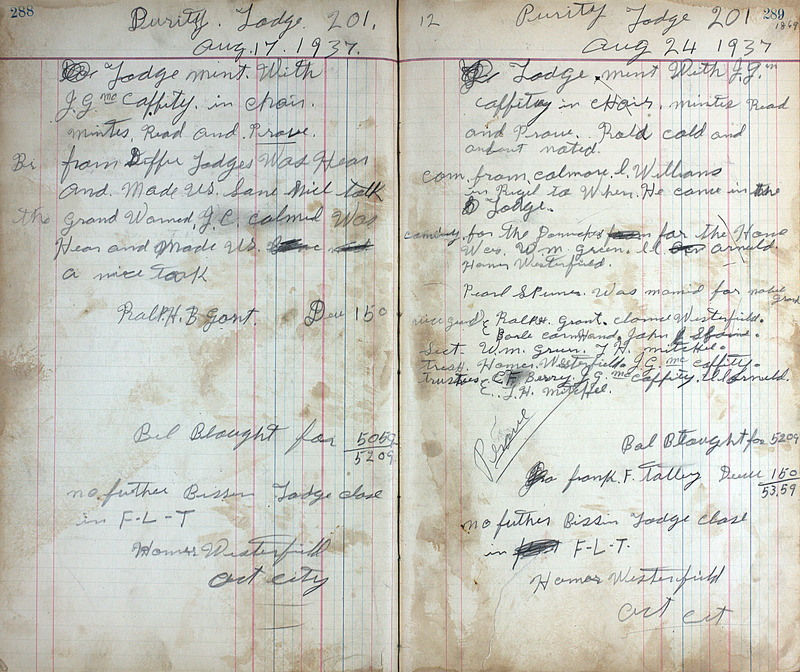 288
Purity. Lodge. 201.
Aug. 17. 1937.
Lodge mint. With
J.G. mc Caffity. in chair.
mintes, Read and Prove.
from Diffre Lodges Was Hear
And. Made Us. Sane Nice talk
the Grand Warned, J.C. Calmed Was
Hear and Made Us.
a nice talk
Ralph. B Gant. Due 150
Bal Btought for 5059
5209
no futher Bissin Lodge close
in F-L-T
Homer Westerfield
act city
12
Purity Lodge 201
289
Aug 24 1937
Lodge. mint With J.G. m
Caffitey in Chair. mintes Read
and Prove. Rold cold and
nated.
com. from. calmore. l. Willians
in Rigil to When. He came in the
Lodge.
for the for the Home
Wes. W.m. Green. ll Arneld.
Homer Westerfield.
Pearl Spines. Was momid for noble
grand
Ralph. Grant. Westerfield.
John
Sect. W.m. Green. J. H. mitchel.
tresh. Homer. Westerfield. J.G. mc caffity.
trustees. C F Berry. J.G. mc Caffity. ll Arneld.
C. J. H. mitchel.
Prove
Bal Btought for 5209
frank. F. Talley Deue 150
53.59
no futher Bissin Lodge close
in F-L-T.
Homer Westerfield
act cet